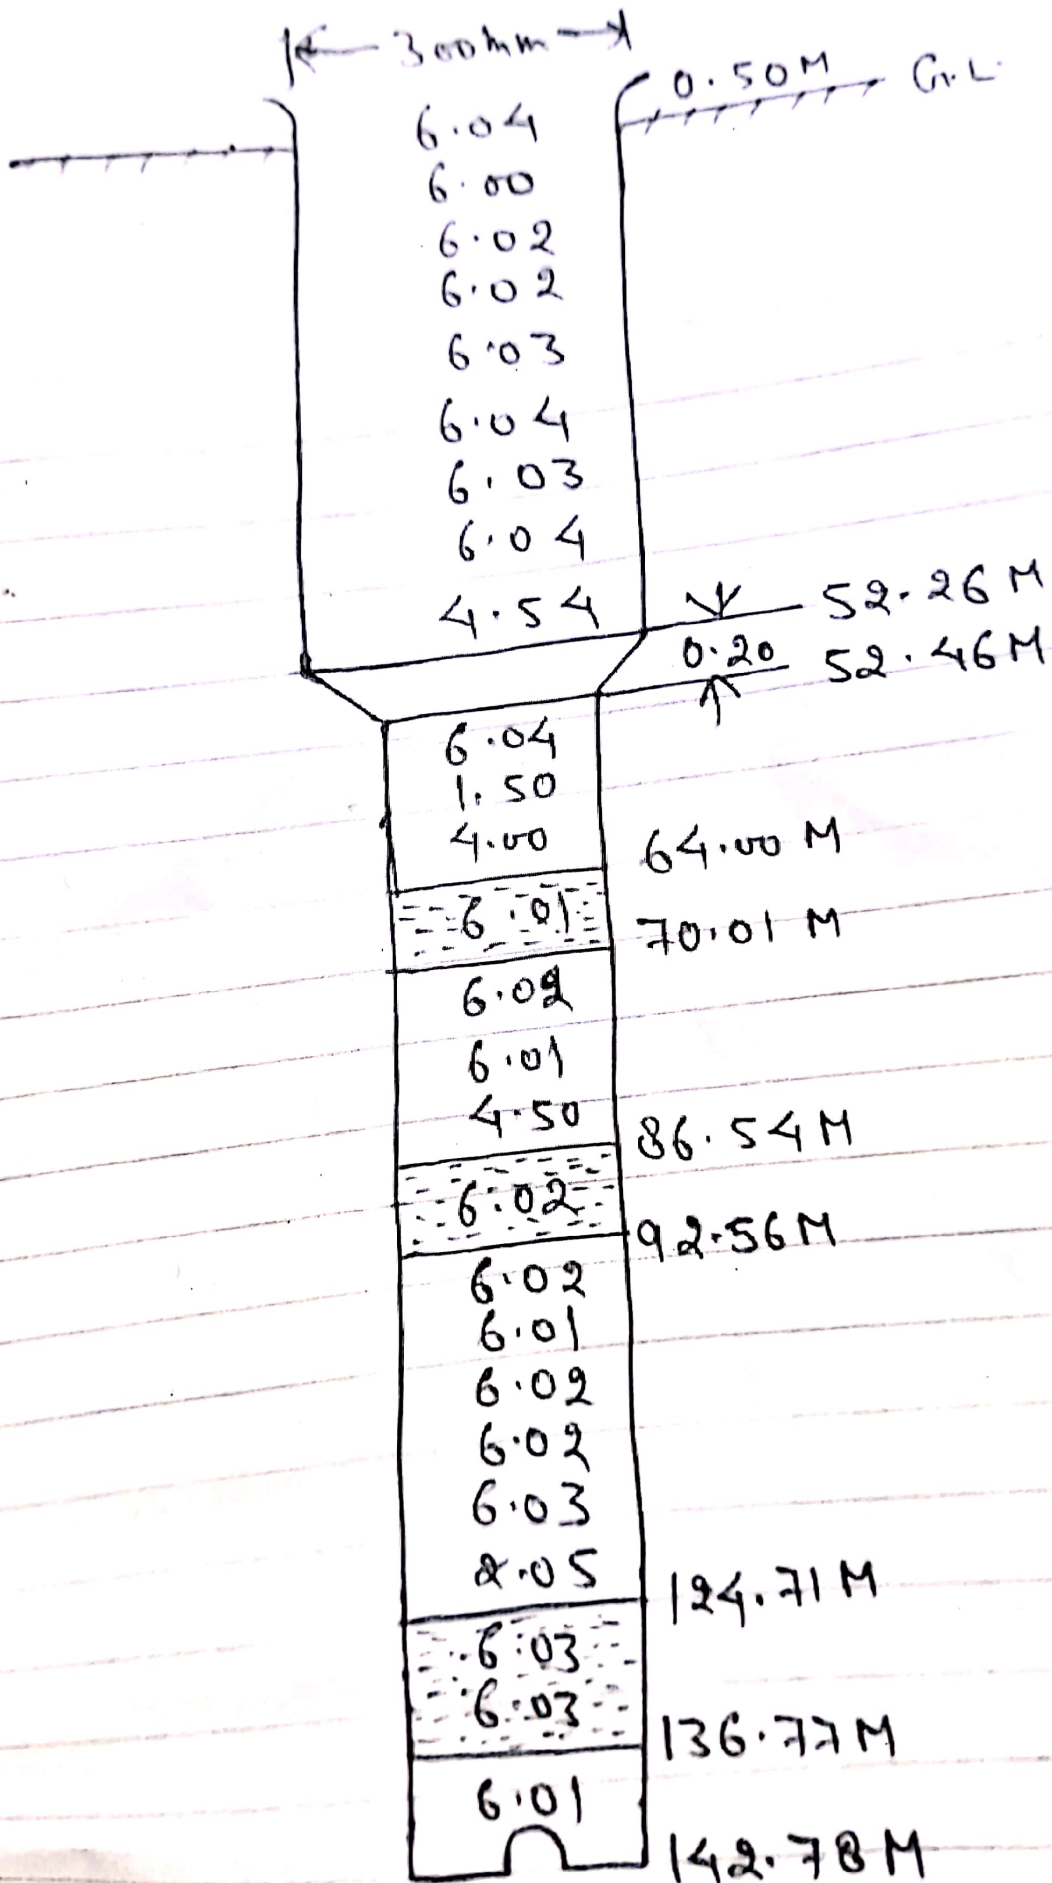 300mm
0.50M G.L.
6.04
6.00
6.02
6.02
6.03
6.04
6.03
6.04
4.54
52.26 M
0.20 52.46 M
6.04
1.50
4.00 64.00 M
6.01 70.01 M
6.02
6.01
4.50 86.54 M
6.02 92.56 M
6.02
6.01
6.02
6.02
6.03
2.05 124.71 M
6.03
6.03 136.77 M
6.01
142.78 M